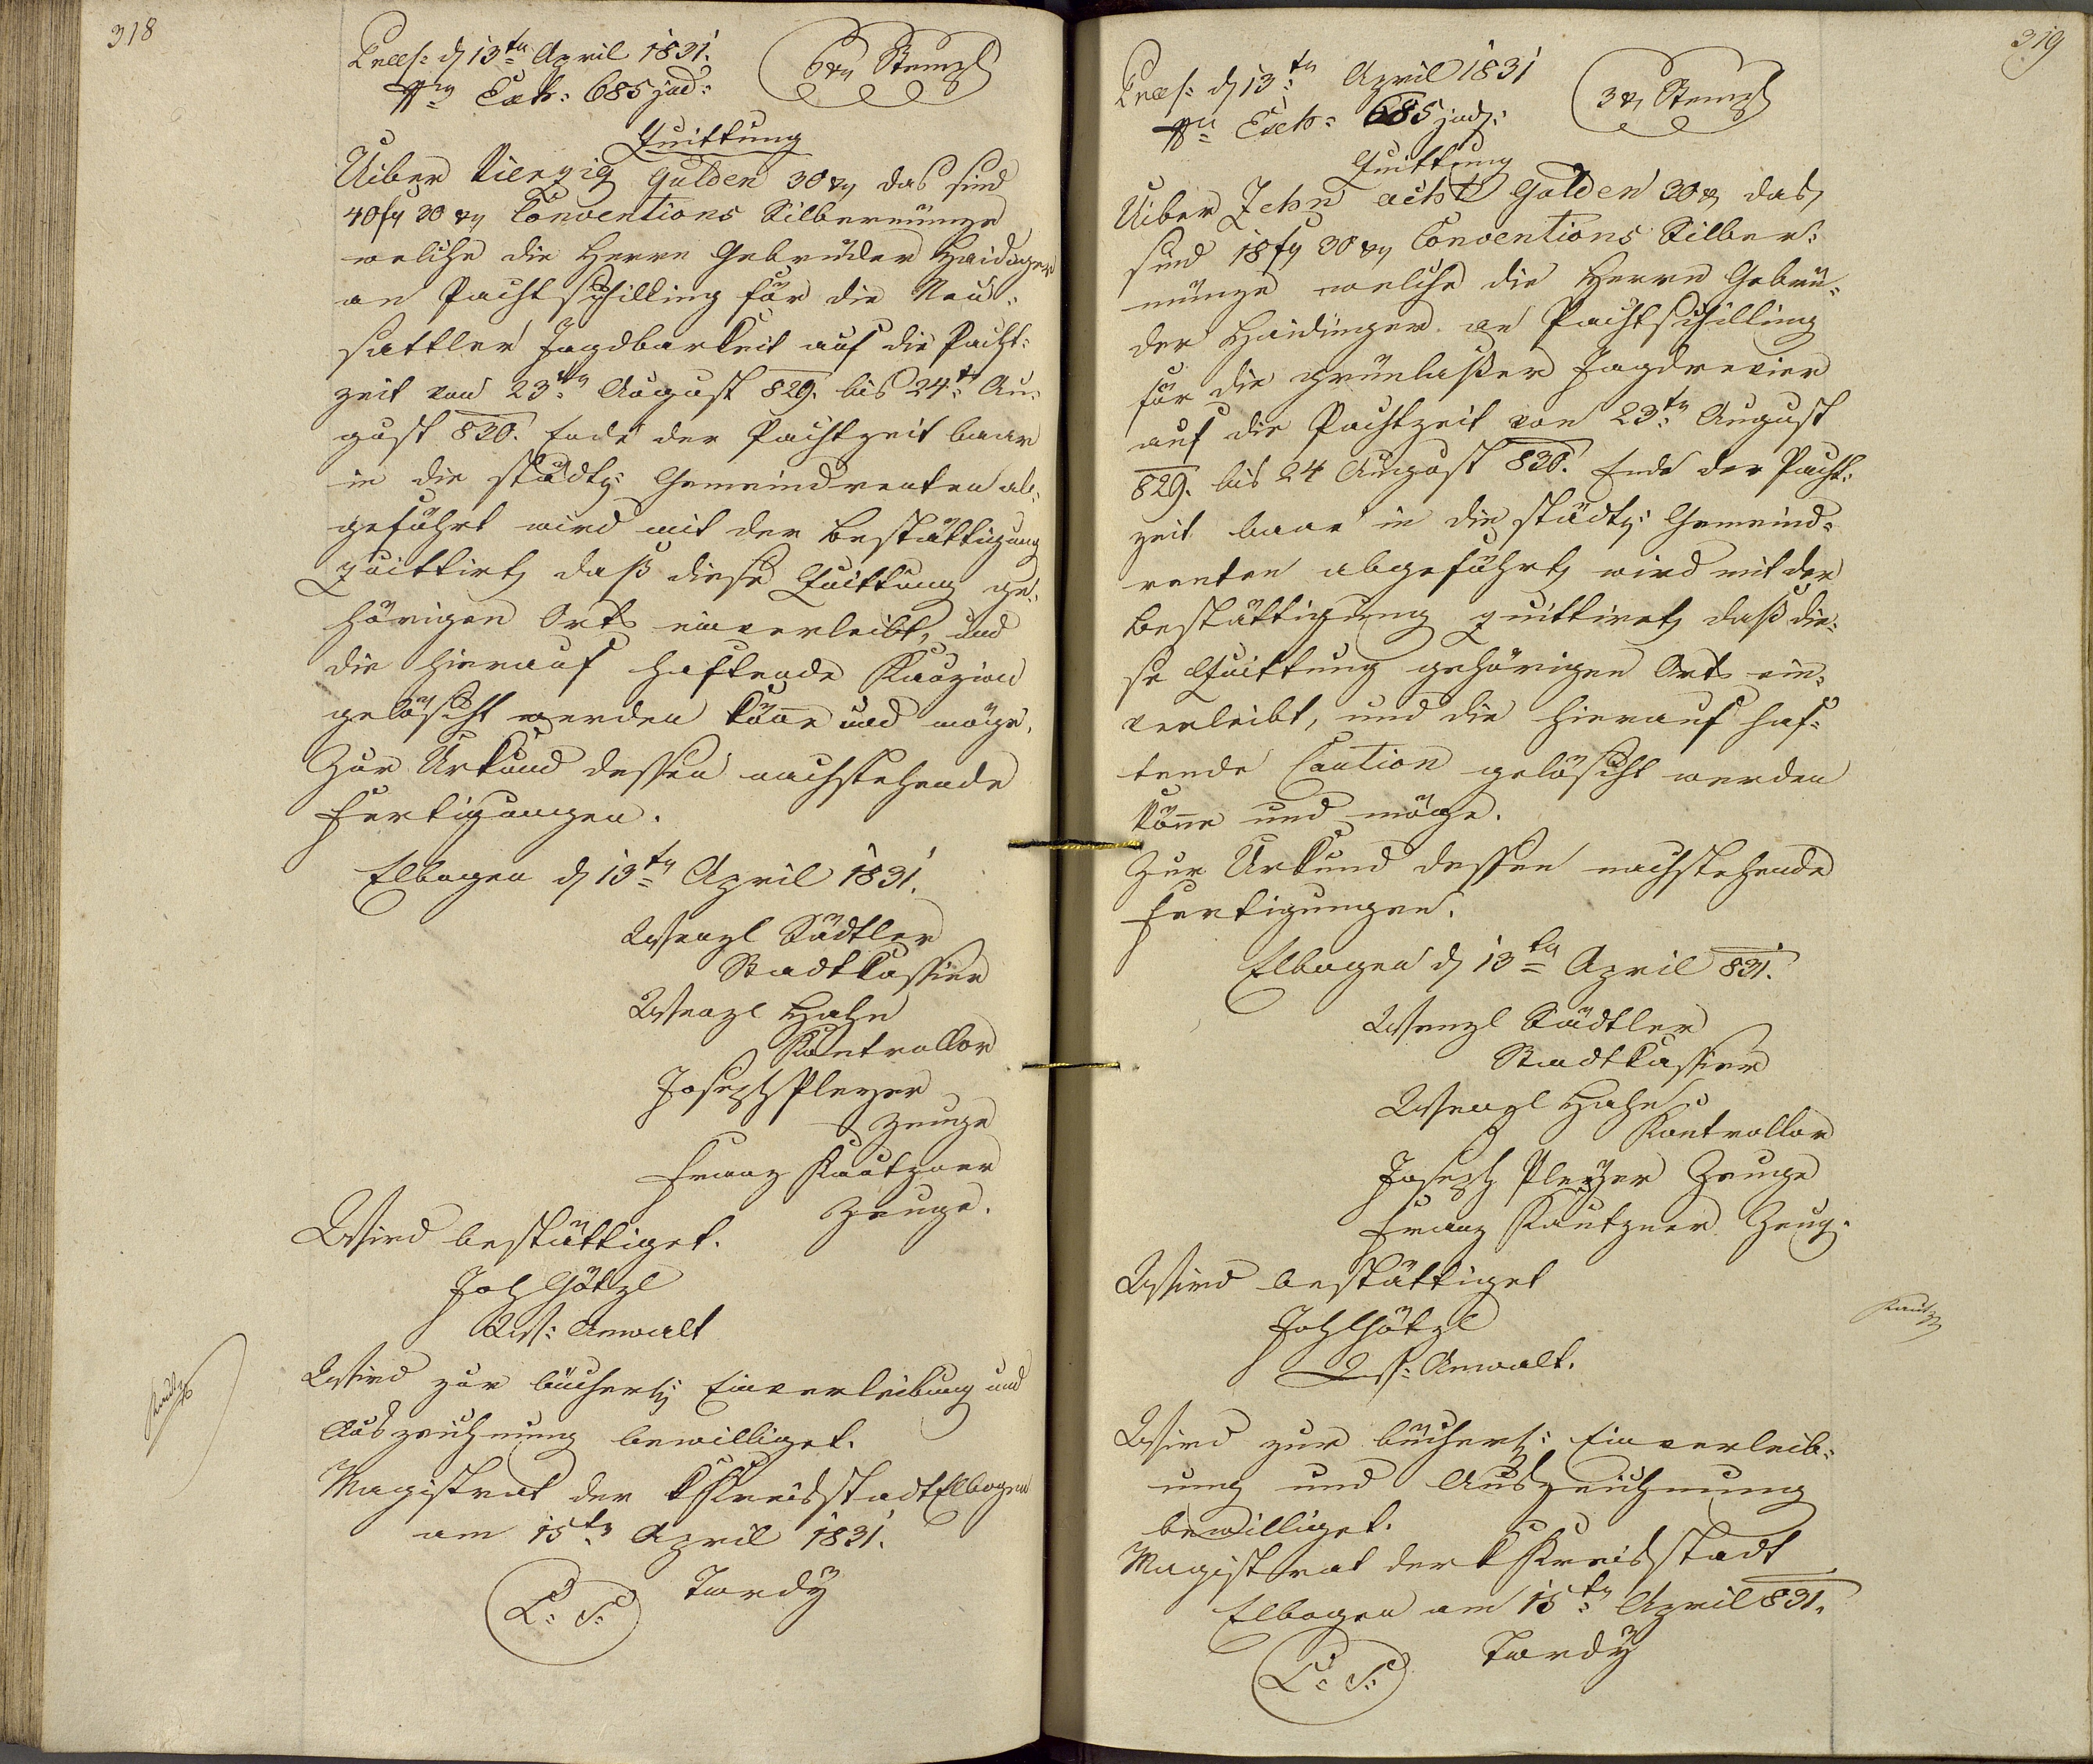 318
Praes: d 13ten April 1831.
Exh: 685 jud:
6 xr Stempl
Quittung
Uiber Vierzig Gulden 30 xr das sind
40 fr 30 xr Conventions Silbermünze
welche die Herrn Gebrüder Haidinger
an Pachtschilling für die Neu-
sattler Jagdbarkeit auf die Pacht-
zeit von 23ten August 829. bis 24t Au-
gust 830. Ende der Pachtzeit baar
in die städt: Gemeindrenten ab-
geführt wird mit der Bestättigung
quittirt, daß diese Quittung ge-
hörigen Orts einverleibt, und
die hierauf haftende Kauzion
gelöscht werden könne und möge.
Zur Urkund dessen nachstehende
Fertigungen.
Elbogen d 13ten April 1831.
Wenzl Sädtler
Stadtkassier
Wenzl Hahn
Kontrollor
Joseph Pleyer
Zeuge
Franz Kautzner
Zeuge.
Wird bestättiget.
Joh Götzl
Ws: Anwalt
Wird zur bücherl: Einverleibung und
Auszeichnung bewilliget.
Magistrat der k Kreisstadt Elbogen
am 15ten April 1831.
L: S: Tordy
319
Praes: d 13ten April 1831
Exh: 685 jud:
3 xr Stempl
Quittung
Uiber Zehn acht Gulden 30 xr das
sind 18 fr 30 xr Conventions Silber-
münze welche die Herrn Gebrü-
der Haidinger an Pachtschilling
für die grünlaßer Jagdrevier
auf die Pachtzeit von 23ten August
829. bis 24 August 830. Ende der Pacht-
zeit baar in die städt: Gemeind-
renten abgeführt, wird mit der
Bestättigung quittiret, daß die-
se Quittung gehörigen Orts ein-
verleibt, und die hierauf haf-
tende Caution gelöscht werden
könne und möge.
Zur Urkund dessen nachstehende
Fertigungen.
Elbogen d 13ten April 831.
Wenzl Sädtler
Stadtkassier
Wenzl Hahn
Kontrollor
Joseph Pleyer Zeuge
Franz Kautzner Zeug.
Wird bestättiget
Joh Götzl
Ws: Anwalt.
Wird zur bücherl: Einverleib-
ung und Auszeichnung
bewilliget.
Magistrat der k Kreisstadt
Elbogen am 15ten April 831.
L: S: Tordy